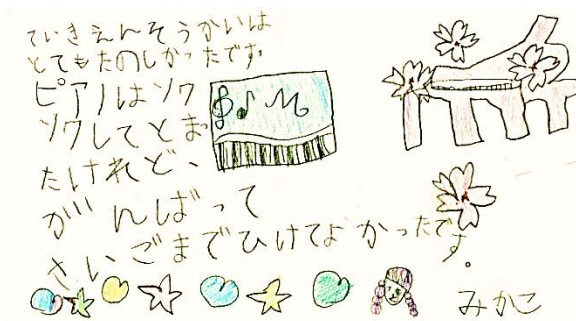 ていきえんそうかいは
とてもたのしかったです。
ピアノはソワ
ソワしてとま
たけれど、
がんばって
さいごまでひけてよかったです。
みかこ